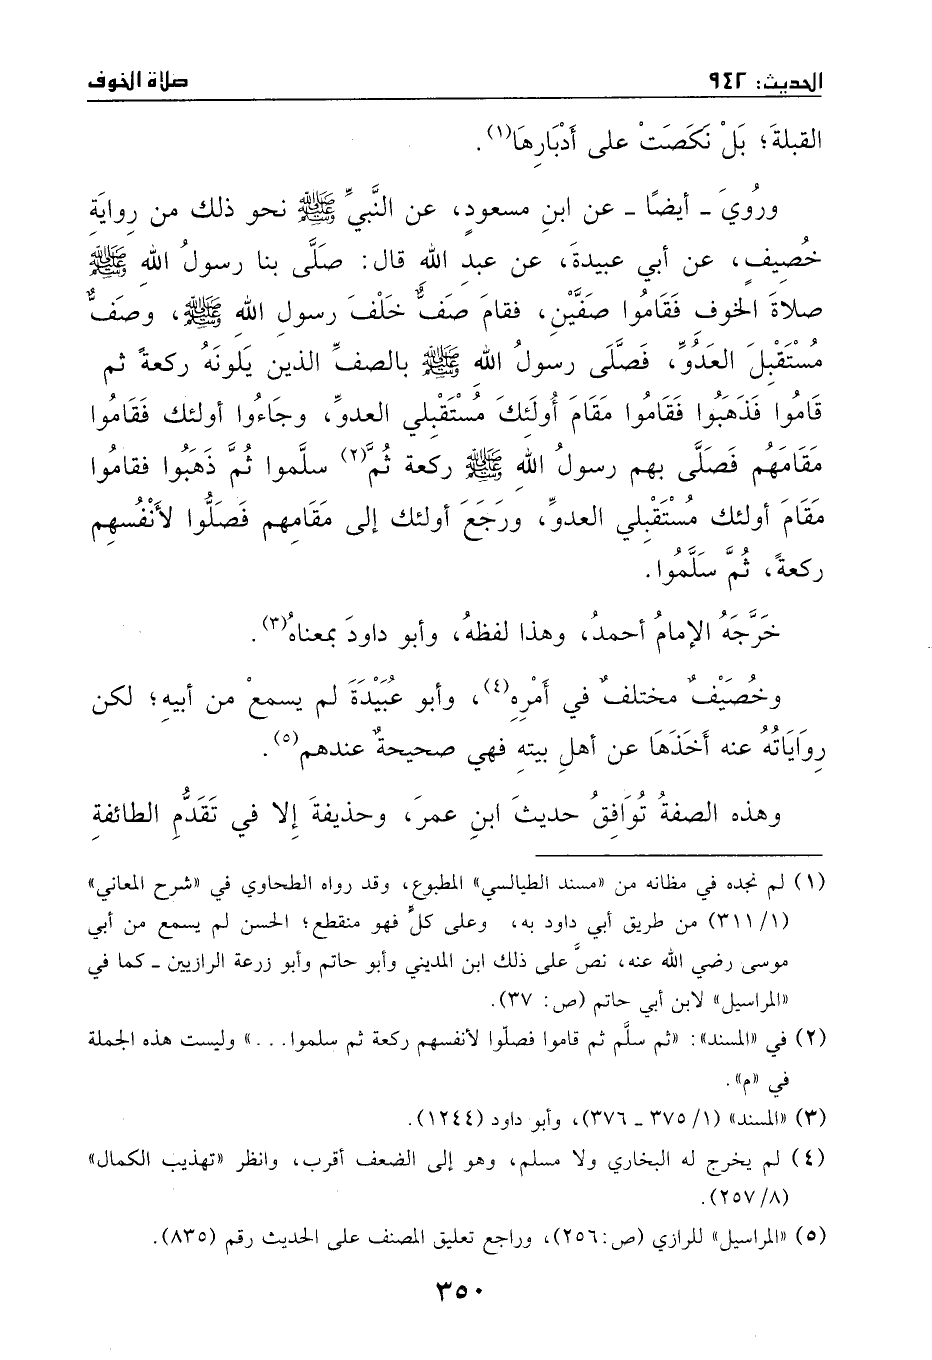 الحديث: ٩٤٢
صلاة الخوف
القبلةَ؛ بَلْ نَكَصَتْ على أَدْبَارِهَا(١).
ورُويَ - أيضًا - عن ابنِ مسعودٍ، عن النَّبيِّ ﷺ نحو ذلك من روايَةِ
خُصيفٍ، عن أبي عبيدةَ، عن عبدِ الله قال: صلَّى بنا رسولُ الله ﷺ
صلاةَ الخوفِ فَقَامُوا صفَّيْن، فقامَ صَفٌّ خَلْفَ رسولِ الله ﷺ، وصفٌّ
مُسْتَقْبِلَ العَدُوِّ، فَصَلَّى رسولُ الله ﷺ بالصفِّ الذين يَلُونَهُ ركعةً ثم
قَامُوا فَذَهَبُوا فَقَامُوا مَقَامَ أُولَئِكَ مُسْتَقْبِلي العدوِّ، وجَاءُوا أولئك فَقَامُوا
مَقَامَهُم فَصَلَّى بهم رسولُ الله ﷺ ركعة ثُمَّ(٢) سلَّموا ثُمَّ ذَهَبُوا فقاموا
مَقَامَ أولئك مُسْتَقْبِلي العدوِّ، ورَجَعَ أولئك إلى مقَامِهم فَصَلُّوا لأَنْفُسهم
ركعةً، ثُمَّ سَلَّمُوا.
خَرَّجَهُ الإمامُ أحمدُ، وهذا لفظهُ، وأبو داودَ بمعناهُ(٣).
وخُصَيْفٌ مختلفٌ في أَمْرِهِ(٤)، وأبو عُبَيْدَةَ لم يسمعْ من أبيهِ؛ لكن
رِوَايَاتُهُ عنه أَخَذَهَا عن أهلِ بيتهِ فهي صحيحةٌ عندهم(٥).
وهذه الصفةُ تُوَافِقُ حديثَ ابنِ عمرَ، وحذيفةَ إلا في تَقَدُّمِ الطائفةِ
(١) لم نجده في مظانه من «مسند الطيالسي» المطبوع، وقد رواه الطحاوي في «شرح المعاني»
(١/ ٣١١) من طريق أبي داود به، وعلى كلٍّ فهو منقطع؛ الحسن لم يسمع من أبي
موسى رضي الله عنه، نصَّ على ذلك ابن المديني وأبو حاتم وأبو زرعة الرازيين - كما في
«المراسيل» لابن أبي حاتم (ص: ٣٧).
(٢) في «المسند»: «ثم سلَّم ثم قاموا فصلّوا لأنفسهم ركعة ثم سلموا...» وليست هذه الجملة
في «م».
(٣) «المسند» (١/ ٣٧٥ - ٣٧٦)، وأبو داود (١٢٤٤).
(٤) لم يخرج له البخاري ولا مسلم، وهو إلى الضعف أقرب، وانظر «تهذيب الكمال»
(٨/ ٢٥٧).
(٥) «المراسيل» للرازي (ص: ٢٥٦)، وراجع تعليق المصنف على الحديث رقم (٨٣٥).
٣٥٠